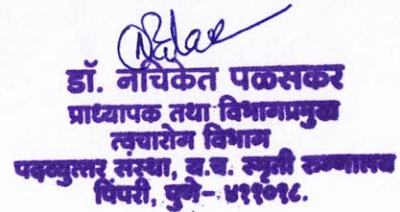 डॉ. नचिकेत पळसकर
प्राध्यापक तथा विभागप्रमुख
त्वचारोग विभाग
पदव्युत्तर संस्था, य.च. स्मृती रुग्णालय
पिंपरी, पुणे- ४११०१८.